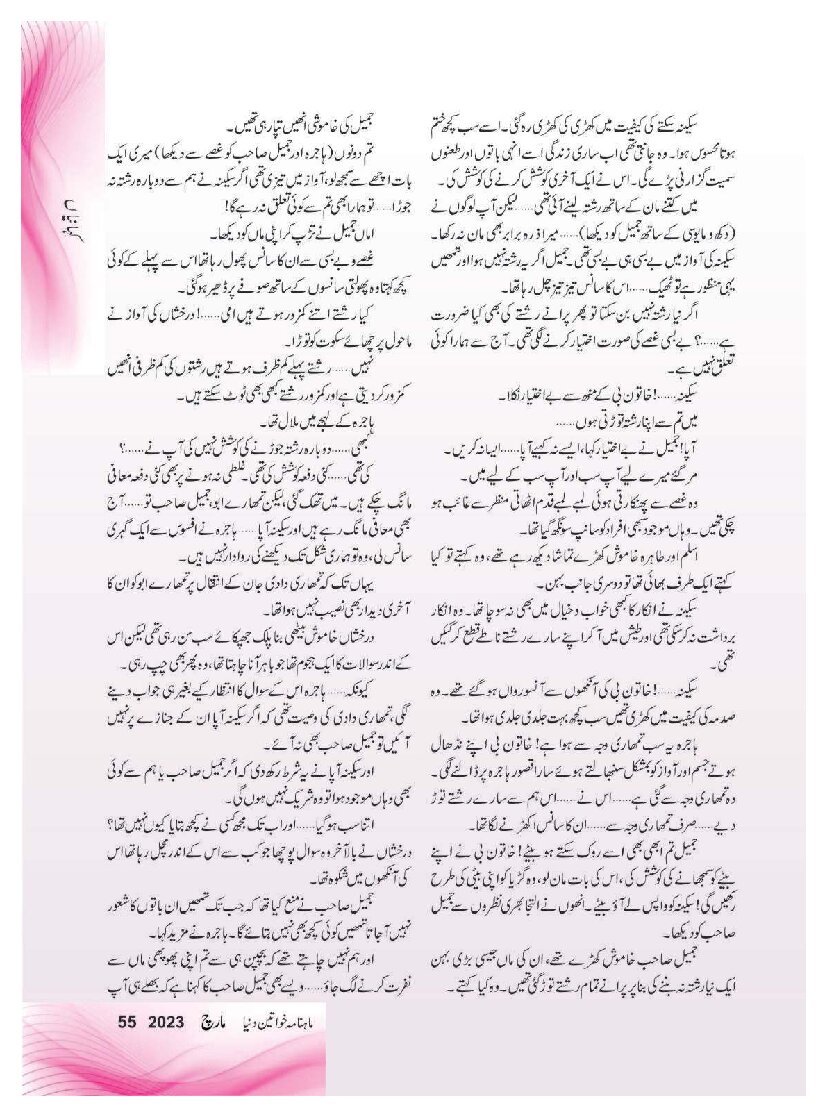 سکینہ سکتے کی کیفیت میں کھڑی کی کھڑی رہ گئی۔ اسے سب کچھ ختم
ہوتا محسوس ہوا۔ وہ جانتی تھی اب ساری زندگی اسے انہی باتوں اور طعنوں
سمیت گزارنی پڑے گی۔ اس نے ایک آخری کوشش کرنے کی کوشش کی۔
میں کتنے مان کے ساتھ رشتہ لینے آئی تھی......لیکن آپ لوگوں نے
(دکھ و مایوسی کے ساتھ جمیل کو دیکھا)......میرا ذرہ برابر بھی مان نہ رکھا۔
سکینہ کی آواز میں بے بسی ہی بے بسی تھی۔ جمیل اگر یہ رشتہ نہیں ہوا اور تمھیں
یہی منظور ہے تو ٹھیک......اس کا سانس تیز تیز چل رہا تھا۔
اگر نیا رشتہ نہیں بن سکتا تو پھر پرانے رشتے کی بھی کیا ضرورت
ہے......؟ بے بسی غصے کی صورت اختیار کرنے لگی تھی۔ آج سے ہمارا کوئی
تعلق نہیں ہے۔
سکینہ......! خاتون بی کے منھ سے بے اختیار نکلا۔
میں تم سے اپنا رشتہ توڑتی ہوں......
آپا! جمیل نے بے اختیار کہا، ایسے نہ کہیے آپا......ایسا نہ کریں۔
مر گئے میرے لیے آپ سب اور آپ سب کے لیے میں۔
وہ غصے سے پھنکارتی ہوئی لمبے لمبے قدم اٹھاتی منظر سے غائب ہو
چکی تھیں۔ وہاں موجود سبھی افراد کو سانپ سونگھ گیا تھا۔
اسلم اور طاہرہ خاموش کھڑے تماشا دیکھ رہے تھے، وہ کہتے تو کیا
کہتے ایک طرف بھائی تھا تو دوسری جانب بہن۔
سکینہ نے انکار کا کبھی خواب و خیال میں بھی نہ سوچا تھا۔ وہ انکار
برداشت نہ کرسکی تھی اور طیش میں آکر اپنے سارے رشتے ناطے قطع کر گئیں
تھی۔
سکینہ......! خاتون بی کی آنکھوں سے آنسو رواں ہو گئے تھے۔ وہ
صدمہ کی کیفیت میں کھڑی تھیں سب کچھ بہت جلدی جلدی ہوا تھا۔
ہاجرہ یہ سب تمھاری وجہ سے ہوا ہے! خاتون بی اپنے نڈھال
ہوتے جسم اور آواز کو بمشکل سنبھالتے ہوئے سارا قصور ہاجرہ پر ڈالنے لگی۔
وہ تمھاری وجہ سے گئی ہے......اس نے......اس ہم سے سارے رشتے توڑ
دیے......صرف تمھاری وجہ سے......ان کا سانس اکھڑنے لگا تھا۔
جمیل تم ابھی بھی اسے روک سکتے ہو بیٹے! خاتون بی نے اپنے
بیٹے کو سمجھانے کی کوشش کی، اس کی بات مان لو، وہ گڑیا کو اپنی بیٹی کی طرح
رکھیں گی! سکینہ کو واپس لے آؤ بیٹے۔ انھوں نے التجا بھری نظروں سے جمیل
صاحب کو دیکھا۔
جمیل صاحب خاموش کھڑے تھے، ان کی ماں جیسی بڑی بہن
ایک نیا رشتہ نہ بننے کی بنا پر پرانے تمام رشتے توڑ گئی تھیں۔ وہ کیا کہتے۔
جمیل کی خاموشی انھیں تپا رہی تھیں۔
تم دونوں (ہاجرہ اور جمیل صاحب کو غصے سے دیکھا) میری ایک
بات اچھے سے سمجھ لو، آواز میں تیزی تھی اگر سکینہ نے ہم سے دوبارہ رشتہ نہ
جوڑا......تو ہمارا بھی تم سے کوئی تعلق نہ رہے گا!
اماں جمیل نے تڑپ کر اپنی ماں کو دیکھا۔
غصے و بے بسی سے ان کا سانس پھول رہا تھا اس سے پہلے کے کوئی
کچھ کہتا وہ پھولتی سانسوں کے ساتھ صوفے پر ڈھیر ہو گئی۔
کیا رشتے اتنے کمزور ہوتے ہیں امی......! درخشاں کی آواز نے
ماحول پر چھائے سکوت کو توڑا۔
نہیں......رشتے پہلے کم ظرف ہوتے ہیں رشتوں کی کم ظرفی انھیں
کمزور کر دیتی ہے اور کمزور رشتے کبھی بھی ٹوٹ سکتے ہیں۔
ہاجرہ کے لہجے میں ملال تھا۔
کبھی......دوبارہ رشتہ جوڑنے کی کوشش نہیں کی آپ نے......؟
کی تھی......کئی دفعہ کوشش کی تھی۔ غلطی نہ ہونے پر بھی کئی دفعہ معافی
مانگ چکے ہیں۔ میں تھک گئی، لیکن تمھارے ابو جمیل صاحب تو......آج
بھی معافی مانگ رہے ہیں اور سکینہ آپا......ہاجرہ نے افسوس سے ایک گہری
سانس لی، وہ تو ہماری شکل تک دیکھنے کی روادار نہیں ہیں۔
یہاں تک کہ تمھاری دادی جان کے انتقال پر تمھارے ابو کو ان کا
آخری دیدار بھی نصیب نہیں ہوا تھا۔
درخشاں خاموش بیٹھی بنا پلک جھپکائے سب سن رہی تھی لیکن اس
کے اندر سوالات کا ایک ہجوم تھا جو باہر آنا چاہتا تھا، وہ پھر بھی چپ رہی۔
کیونکہ......ہاجرہ اس کے سوال کا انتظار کیے بغیر ہی جواب دینے
لگی، تمھاری دادی کی وصیت تھی کہ اگر سکینہ آپا ان کے جنازے پر نہیں
آئیں تو جمیل صاحب بھی نہ آئے۔
اور سکینہ آپا نے یہ شرط رکھ دی کہ اگر جمیل صاحب یا ہم سے کوئی
بھی وہاں موجود ہوا تو وہ شریک نہیں ہوں گی۔
اتنا سب ہو گیا......اور اب تک مجھ کسی نے کچھ بتایا کیوں نہیں تھا؟
درخشاں نے بالآخر وہ سوال پوچھا جو کب سے اس کے اندر مچل رہا تھا اس
کی آنکھوں میں شکوہ تھا۔
جمیل صاحب نے منع کیا تھا کہ جب تک تمھیں ان باتوں کا شعور
نہیں آجاتا تمھیں کوئی کچھ بھی نہیں بتائے گا۔ ہاجرہ نے مزید کہا۔
اور ہم نہیں چاہتے تھے کہ بچپن ہی سے تم اپنی پھوپھی ماں سے
نفرت کرنے لگ جاؤ......ویسے بھی جمیل صاحب کا کہنا ہے کہ بھلے ہی آپ
ماہنامہ خواتین دنیا مارچ 2023 55